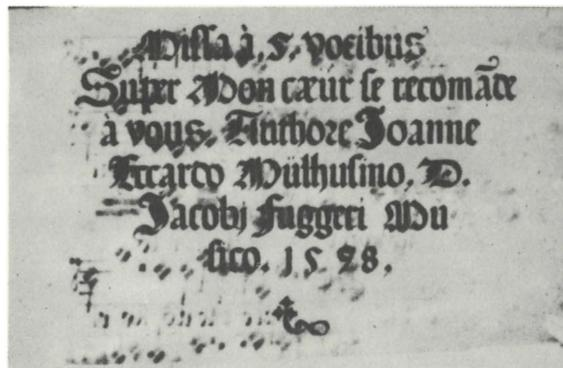 Missa à. 5. vocibus
Super Mon cæur se recomãde
à vous. Authore Joanne
Eccardo Mülhusino. D.
Jacobj fuggeri Mu
sico. 1578.